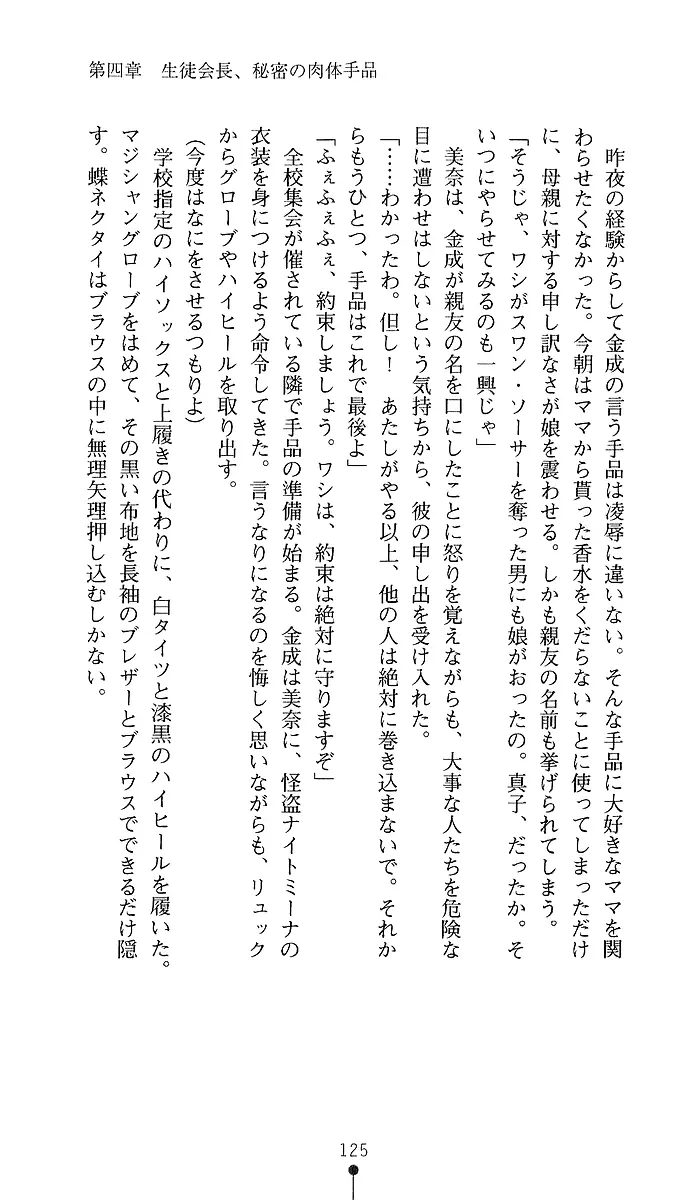 第四章　生徒会長、秘密の肉体手品
　昨夜の経験からして金成の言う手品は凌辱に違いない。そんな手品に大好きなママを関
わらせたくなかった。今朝はママから貰った香水をくだらないことに使ってしまっただけ
に、母親に対する申し訳なさが娘を震わせる。しかも親友の名前も挙げられてしまう。
「そうじゃ、ワシがスワン・ソーサーを奪った男にも娘がおったの。真子、だったか。そ
いつにやらせてみるのも一興じゃ」
　美奈は、金成が親友の名を口にしたことに怒りを覚えながらも、大事な人たちを危険な
目に遭わせはしないという気持ちから、彼の申し出を受け入れた。
「……わかったわ。但し！　あたしがやる以上、他の人は絶対に巻き込まないで。それか
らもうひとつ、手品はこれで最後よ」
「ふぇふぇふぇ、約束しましょう。ワシは、約束は絶対に守りますぞ」
　全校集会が催されている隣で手品の準備が始まる。金成は美奈に、怪盗ナイトミーナの
衣装を身につけるよう命令してきた。言うなりになるのを悔しく思いながらも、リュック
からグローブやハイヒールを取り出す。
（今度はなにをさせるつもりよ）
　学校指定のハイソックスと上履きの代わりに、白タイツと漆黒のハイヒールを履いた。
マジシャングローブをはめて、その黒い布地を長袖のブレザーとブラウスでできるだけ隠
す。蝶ネクタイはブラウスの中に無理矢理押し込むしかない。
125